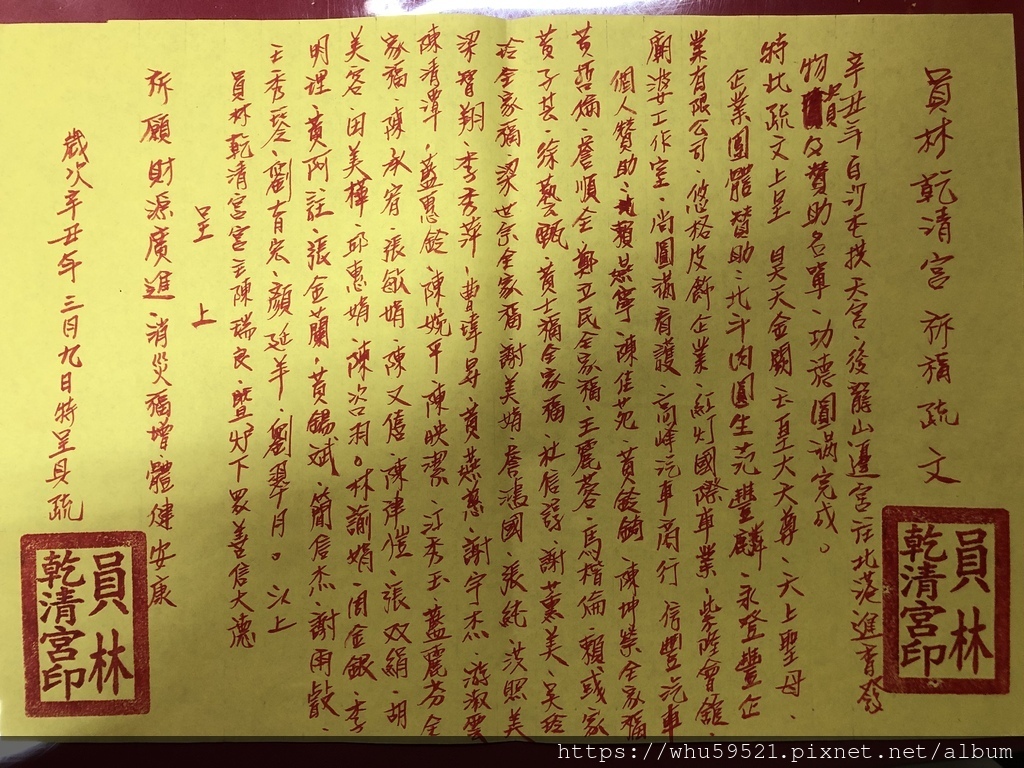 員林乾清宮祈福疏文
辛丑年白沙本拱天宮、後龍山邊宮往北港進香發
物資及贊助名單、功德圓滿完成。
特此疏文上呈 昊天金闕玉皇大天尊、天上聖母、
企業團體贊助:北斗肉圓生范豐麟 永登豐企
業有限公司、悠格皮飾企業、紅灯國際車業、紫陞會館、
廟婆工作室、尚圓滿看護、高峰汽車商行 信豐汽車
個人贊助:賴燕寧、陳佳苑、黃鈴錡、陳坤榮全家福
黃哲倫、詹順全、鄭立民全家福、王麗蓉、馬楷倫、賴彧家
黃子甚、徐藝甄、黃士福全家福、杜信諺、謝薰美、吳玲
玲全家福、梁世宗全家福、謝美娟、詹鴻國、張純、洪照美
梁智翔、李秀萍、曹瑋昇、黃燕蕙、謝宇杰、游淑雲
陳清潭、藍思鈴、陳婉平、陳映潔、江秀玉、藍麗芬全
家福、陳承宥、張敏娟、陳又僖、陳建愷、張双絹、胡
美容、田美樺、邱惠娟、陳咨羽。林諭娟、周金銀、李
明理、黃阿註、張金蘭、黃錫斌、簡信杰、謝雨叡、
王秀琴、劉育宏、顏延羊、劉翠月。以上
員林乾清宮宮主陳瑞良暨炉下眾善信大德
呈 上
祈願財源廣進消災福增體健安康
歲次辛丑年三月九日特呈具疏
員林
乾清宮印
員林
乾清宮印
https://whu59521.pixnet.net/album